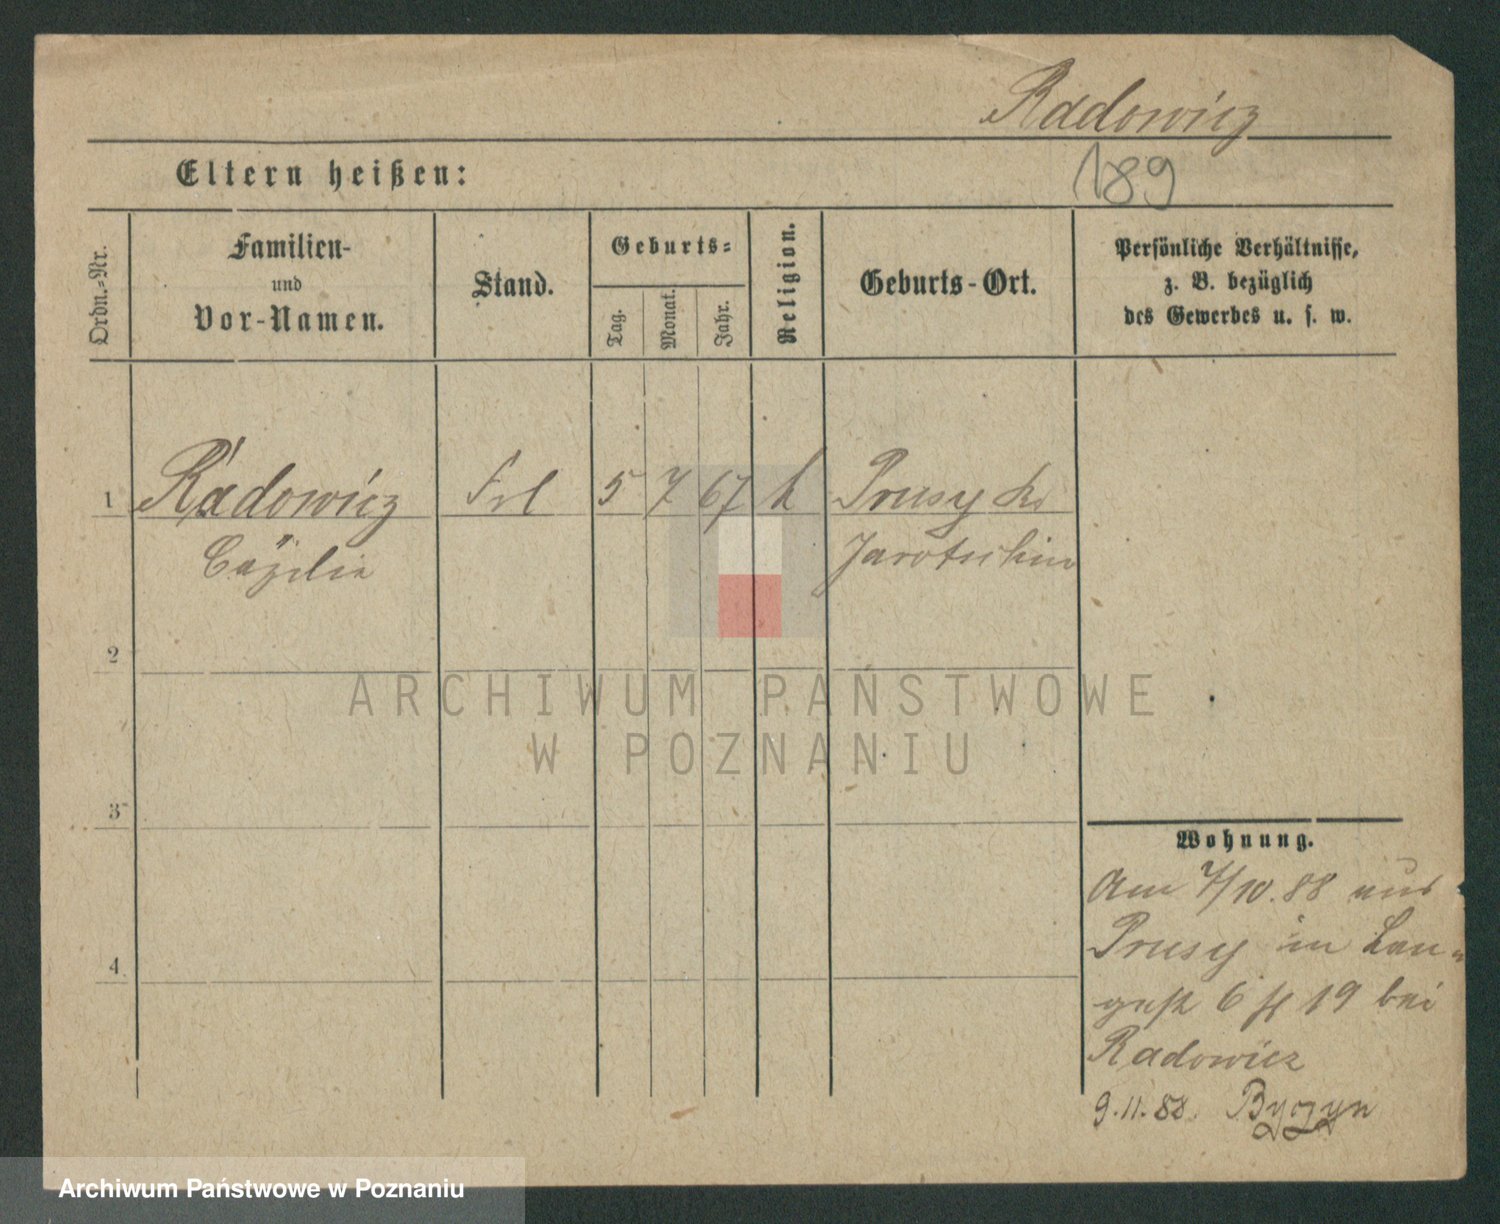 Radowicz
189
Eltern heißen:
Ordn.-Nr.
Familien-
und
Vor-Namen.
Stand.
Geburts-
Tag.
Monat.
Jahr.
Religion.
Geburts-Ort.
Persönliche Verhältnisse,
z. B. bezüglich
des Gewerbes u. s. w.
1 Radowicz Frl 5 7 67 k Prusy Kr
Cäzilie Jarotschin
2
3
4
Wohnung.
Am 7/10.88 aus
Prusy in Lan-
6 19 bei
Radowicz
9.11.88. Byczyn
ARCHIWUM PAŃSTWOWE
W POZNANIU
Archiwum Państwowe w Poznaniu